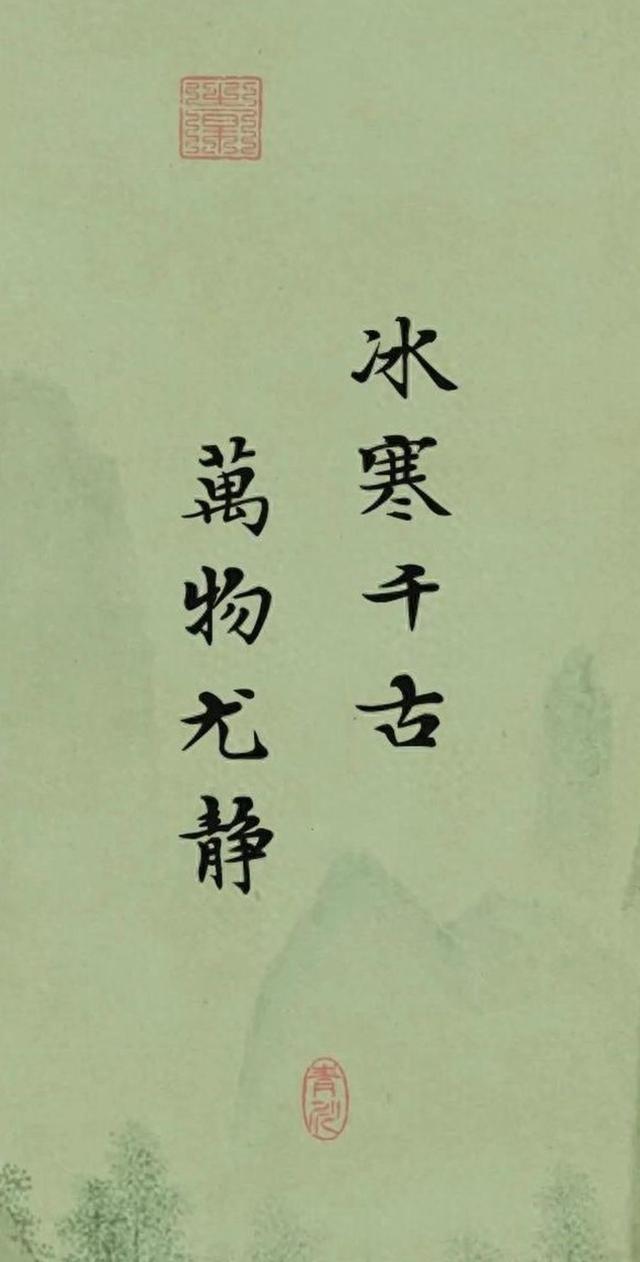 冰寒千古
萬物尤静